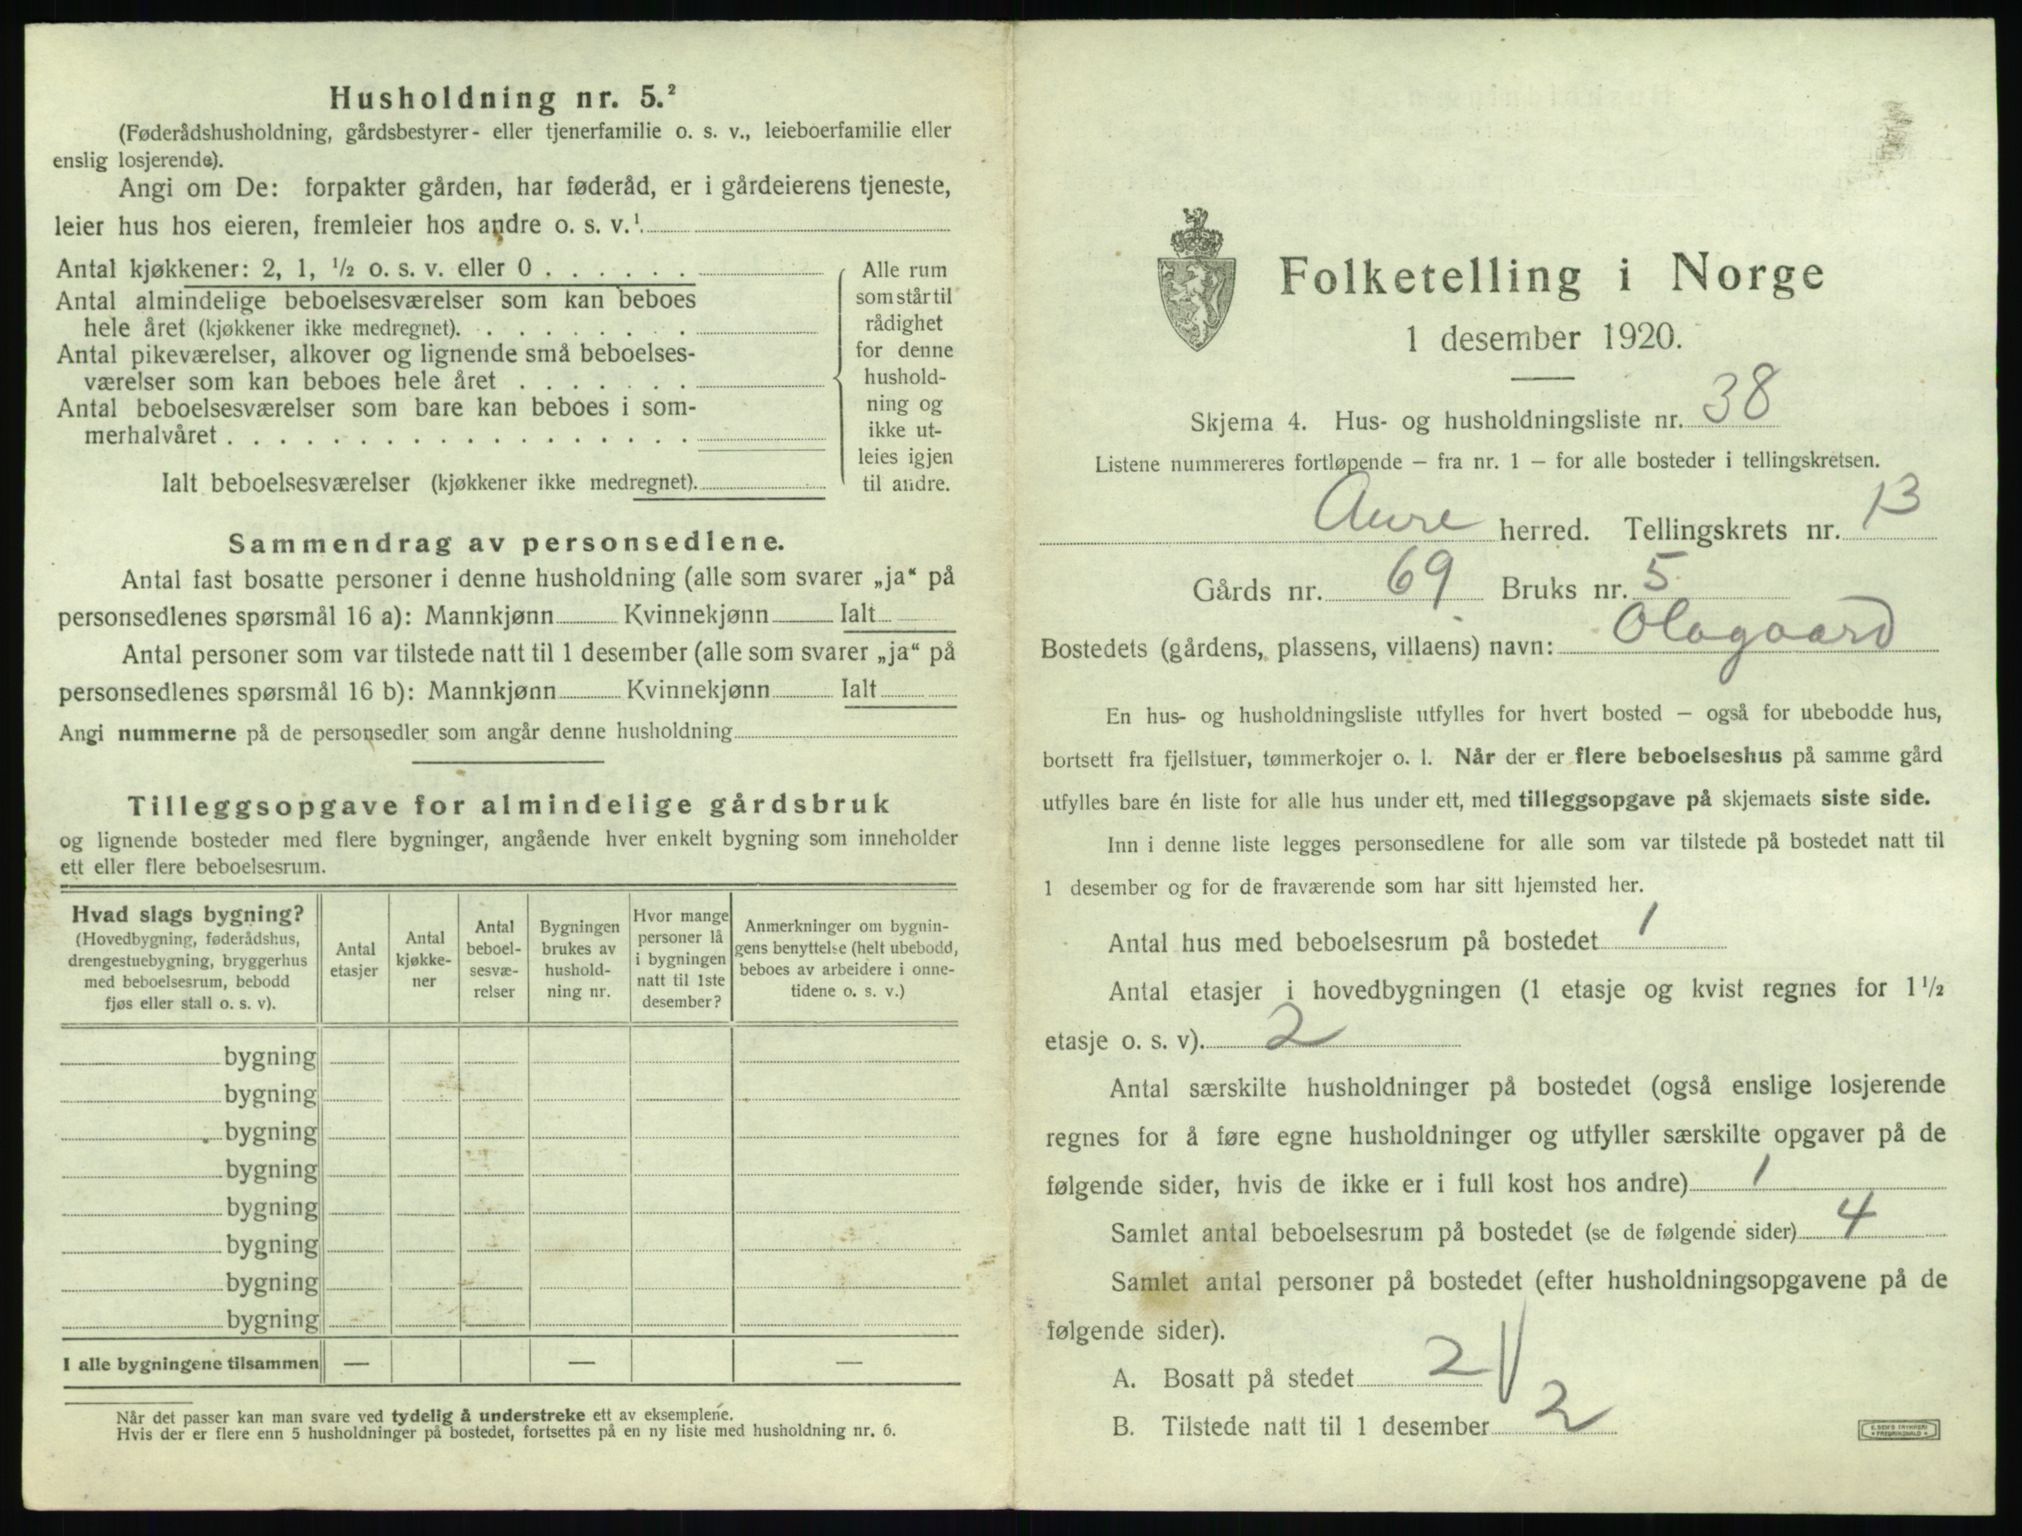 Husholdning nr. 5.²
(Føderådshusholdning, gårdsbestyrer- eller tjenerfamilie o. s. v., leieboerfamilie eller
enslig losjerende).
Angi om De: forpakter gården, har føderåd, er i gårdeierens tjeneste,
leier hus hos eieren, fremleier hos andre o. s. v.¹
Antal kjøkkener: 2, 1, ½ o. s. v. eller 0 . . . . . .
Antal almindelige beboelsesværelser som kan beboes
hele året (kjøkkener ikke medregnet). . . . . . . . .
Antal pikeværelser, alkover og lignende små beboelses-
værelser som kan beboes hele året . . . . . . .
Antal beboelsesværelser som bare kan beboes i som-
merhalvåret . . . . . . . . . . . . . . . . . .
Ialt beboelsesværelser (kjøkkener ikke medregnet).
Alle rum
som står til
rådighet
for denne
hushold-
ning og
ikke ut-
leies igjen
til andre.
Sammendrag av personsedlene.
Antal fast bosatte personer i denne husholdning (alle som svarer „ja“ på
personsedlenes spørsmål 16 a): Mannkjønn Kvinnekjønn Ialt
Antal personer som var tilstede natt til 1 desember (alle som svarer „ja“ på
personsedlenes spørsmål 16 b): Mannkjønn Kvinnekjønn Ialt
Angi nummerne på de personsedler som angår denne husholdning
Tilleggsopgave for almindelige gårdsbruk
og lignende bosteder med flere bygninger, angående hver enkelt bygning som inneholder
ett eller flere beboelsesrum.
Hvad slags bygning?
(Hovedbygning, føderådshus,
drengestuebygning, bryggerhus
med beboelsesrum, bebodd
fjøs eller stall o. s. v).
Antal
etasjer
Antal
kjøkke-
ner
Antal
beboel-
sesvæ-
relser
Bygningen
brukes av
hushold-
ning nr.
Hvor mange
personer lå
i bygningen
natt til 1ste
desember?
Anmerkninger om bygnin-
gens benyttelse (helt ubebodd,
beboes av arbeidere i onne-
tidene o. s. v.)
bygning
bygning
bygning
bygning
bygning
bygning
bygning
bygning
I alle bygningene tilsammen — — —
Når det passer kan man svare ved tydelig å understreke ett av eksemplene.
Hvis der er flere enn 5 husholdninger på bostedet, fortsettes på en ny liste med husholdning nr. 6.
Folketelling i Norge
1 desember 1920.
Skjema 4. Hus- og husholdningsliste nr. 38
Listene nummereres fortløpende — fra nr. 1 — for alle bosteder i tellingskretsen.
Aure herred. Tellingskrets nr. 13
Gårds nr. 69 Bruks nr. 5
Bostedets (gårdens, plassens, villaens) navn: Olagaard
En hus- og husholdningsliste utfylles for hvert bosted — også for ubebodde hus,
bortsett fra fjellstuer, tømmerkojer o. l. Når der er flere beboelseshus på samme gård
utfylles bare én liste for alle hus under ett, med tilleggsopgave på skjemaets siste side.
Inn i denne liste legges personsedlene for alle som var tilstede på bostedet natt til
1 desember og for de fraværende som har sitt hjemsted her.
Antal hus med beboelsesrum på bostedet 1
Antal etasjer i hovedbygningen (1 etasje og kvist regnes for 1½
etasje o. s. v). 2
Antal særskilte husholdninger på bostedet (også enslige losjerende
regnes for å føre egne husholdninger og utfyller særskilte opgaver på de
følgende sider, hvis de ikke er i full kost hos andre) 1
Samlet antal beboelsesrum på bostedet (se de følgende sider) 4
Samlet antal personer på bostedet (efter husholdningsopgavene på de
følgende sider).
A. Bosatt på stedet 2
B. Tilstede natt til 1 desember 2